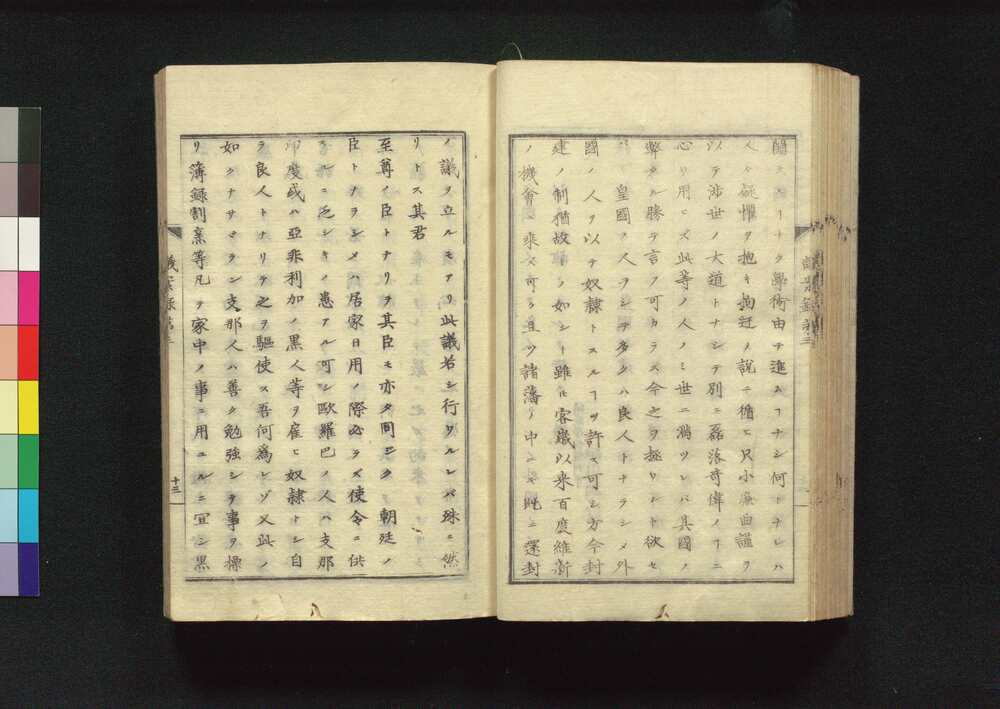 人々疑懼ヲ抱キ拘迂ノ説ニ循ヒ只小廉曲謹ヲ
以テ渉世ノ大道トナシテ別ニ磊落奇偉ノ
心ヲ用ヒズ此等ノ人ノミ世ニ満ツレバ其國ノ
弊タル勝テ言フ可カラス今之ヲ拯ハント欲セ
バ 皇國ノ人ヲシテ多クハ良人トナラシメ外
國ノ人ヲ以テ奴隷トスルヿヲ許ス可シ方今封
建ノ制猶故ノ如シト雖ヒ客歳以来百度維新
ノ機會 乗ス可シ且ツ諸藩ノ中ニ 既ニ還封
ノ議ヲ立ルモノアリ此議若シ行ハルレバ殊ニ然
リトス其君
至尊ノ臣トナリ其臣モ亦タ同ジク 朝廷ノ
臣トナラシメハ居家日用ノ際必ラズ使令ニ供
スルニ乏シキノ患アル可シ歐羅巴ノ人ハ支那
印度或ハ亞非利加ノ黒人等ヲ雇ヒ奴隷トシ自
ラ良人トナリテ之ヲ驅使ス吾何為レゾ又此ノ
如クナサヾラン支那人ハ善ク勉強シテ事ヲ操
リ簿録割烹等凡テ家中ノ事ニ用ユルニ宜シ黒
十三